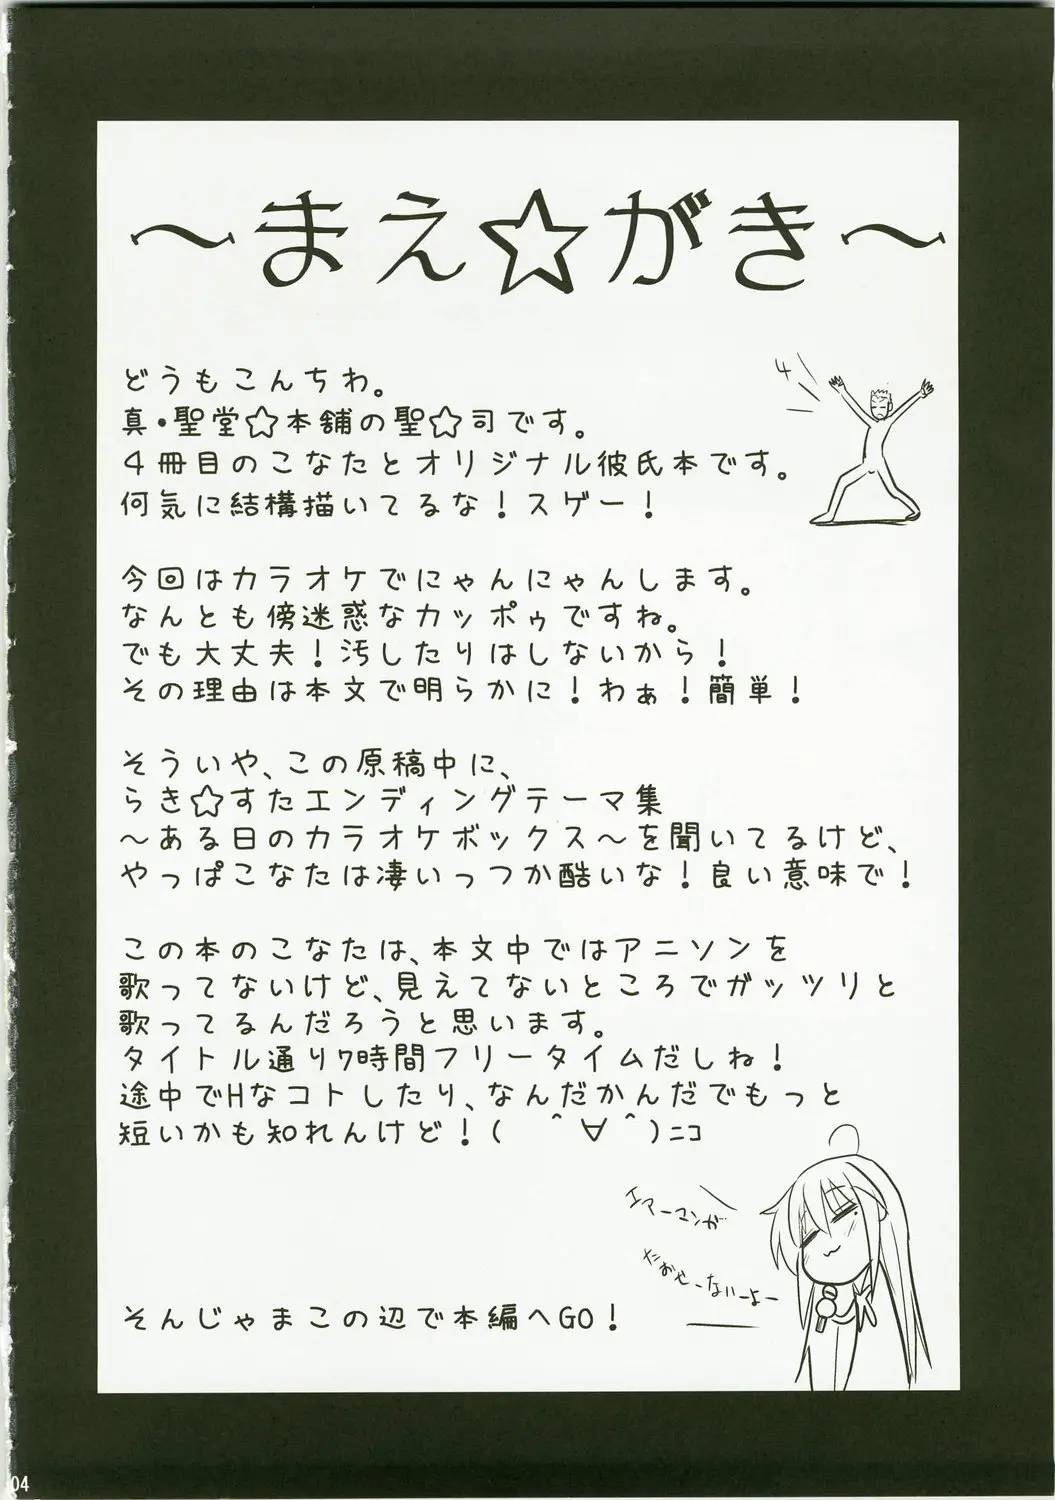 ～まえ☆がき～
どうもこんちわ。
真・聖堂☆本舗の聖☆司です。
４冊目のこなたとオリジナル彼氏本です。
何気に結構描いてるな！スゲー！
4
今回はカラオケでにゃんにゃんします。
なんとも傍迷惑なカッポゥですね。
でも大丈夫！汚したりはしないから！
その理由は本文で明らかに！わぁ！簡単！
そういや、この原稿中に、
らき☆すたエンディングテーマ集
～ある日のカラオケボックス～を聞いてるけど、
やっぱこなたは凄いっつか酷いな！良い意味で！
この本のこなたは、本文中ではアニソンを
歌ってないけど、見えてないところでガッツリと
歌ってるんだろうと思います。
タイトル通り7時間フリータイムだしね！
途中でHなコトしたり、なんだかんだでもっと
短いかも知れんけど！( ＾∀＾)ﾆｺ
エアーマンが
たおせーないーよー
そんじゃまこの辺で本編へGO！
04